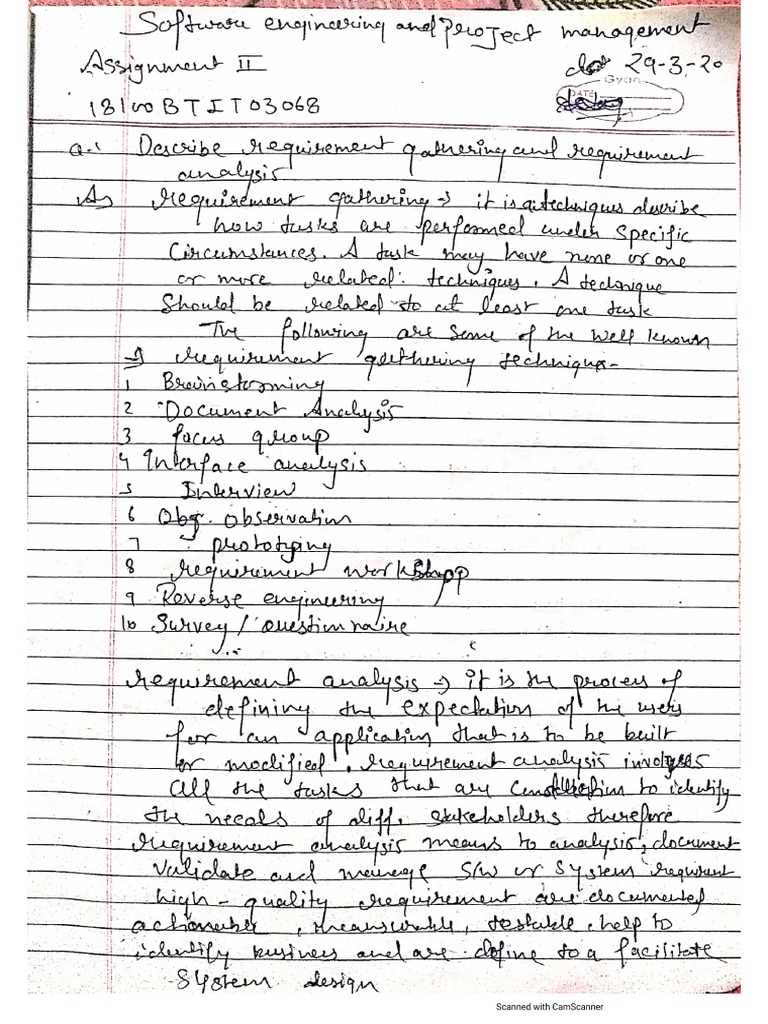 Software engineering and project management
Assignment II
29-3-20
Gyan
DATE
18100BTIT03068
Q.1 Describe requirement gathering and requirement
analysis
A requirement gathering → it is a techniques describe
how tasks are performed under specific
Circumstances. A task may have none or one
or more related techniques. A technique
Should be related to at least one task
The following are some of the well known
requirement gathering technique-
1 Brainstorming
2 Document Analysis
3 focus group
4 Interface analysis
5 Interview
6 observation
7 prototyping
8 requirement workshop
9 Reverse engineering
10 Survey/questionnaire
requirement analysis → it is the process of
defining the expectation of the users
for an application that is to be built
or modified. requirement analysis involves
all the tasks that are to identify
the needs of diff. stakeholders therefore
requirement analysis means to analysis, document
validate and manage S/W or system
high-quality requirement are documented
, measurable, testable, help to
identify business and are define to a facilitate
System design
Scanned with CamScanner